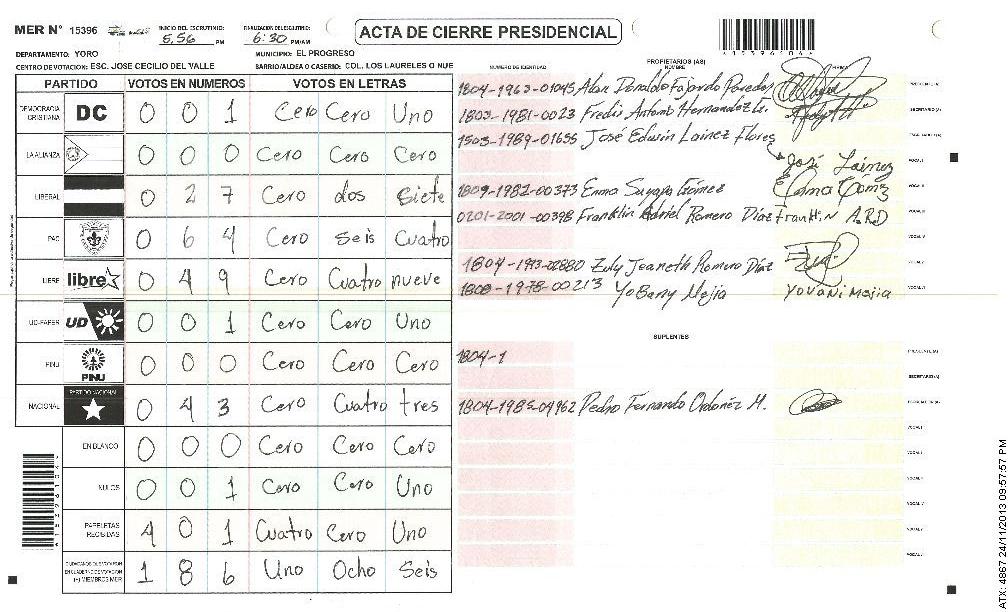 MER N° 15396
INICIO DEL ESCRUTINIO: 5,56 PM
FINALIZACION DEL ESCRUTINIO: 6:30 PM/AM
ACTA DE CIERRE PRESIDENCIAL
DEPARTAMENTO: YORO
MUNICIPIO: EL PROGRESO
CENTRO DE VOTACION: ESC. JOSE CECILIO DEL VALLE
BARRIO/ALDEA O CASERIO: COL. LOS LAURELES O NUE
PARTIDO VOTOS EN NUMEROS VOTOS EN LETRAS
DEMOCRACIA CRISTIANA DC 0 0 1 Cero Cero Uno
LA ALIANZA 0 0 0 Cero Cero Cero
LIBERAL 0 2 7 Cero dos Siete
PAC 0 6 4 Cero Seis Cuatro
LIBRE libre 0 4 9 Cero Cuatro nueve
UD-FAPER UD 0 0 1 Cero Cero Uno
PINU PINU 0 0 0 Cero Cero Cero
NACIONAL PARTIDO NACIONAL 0 4 3 Cero Cuatro tres
EN BLANCO 0 0 0 Cero Cero Cero
NULOS 0 0 1 Cero Cero Uno
PAPELETAS RECIBIDAS 4 0 1 Cuatro Cero Uno
CIUDADANOS QUE VOTARON EN CUADERNO DE VOTACION (+) MIEMBROS MER 1 8 6 Uno Ocho Seis
NUMERO DE IDENTIDAD
PROPIETARIOS (AS)
NOMBRE
FIRMA
1804-1963-01045 Alan Donaldo Fajardo Paredes PRESIDENTE (A)
1803-1981-0023 Fredis Antonio Hernandez SECRETARIO (A)
1503-1989-01655 José Edwin Lainez Flores ESCRUTADOR (A)
José Lainez VOCAL I
1809-1982-00373 Enma Suyapa Gómez Enma Gomz VOCAL II
0201-2001-00398 Franklin Adriel Romero Díaz Franklin A.R.D VOCAL III
VOCAL IV
1804-1973-02880 Zuly Jeaneth Romero Díaz VOCAL V
1808-1978-00213 Yobany Mejia Yovani Mejia VOCAL VI
SUPLENTES
1804-1 PRESIDENTE (A)
SECRETARIO (A)
1804-1985-04962 Pedro Fernando Ordoñez M. ESCRUTADOR (A)
VOCAL I
VOCAL II
VOCAL III
VOCAL IV
VOCAL V
VOCAL VI
ATX: 4867 24/11/2013 09:57:57 PM